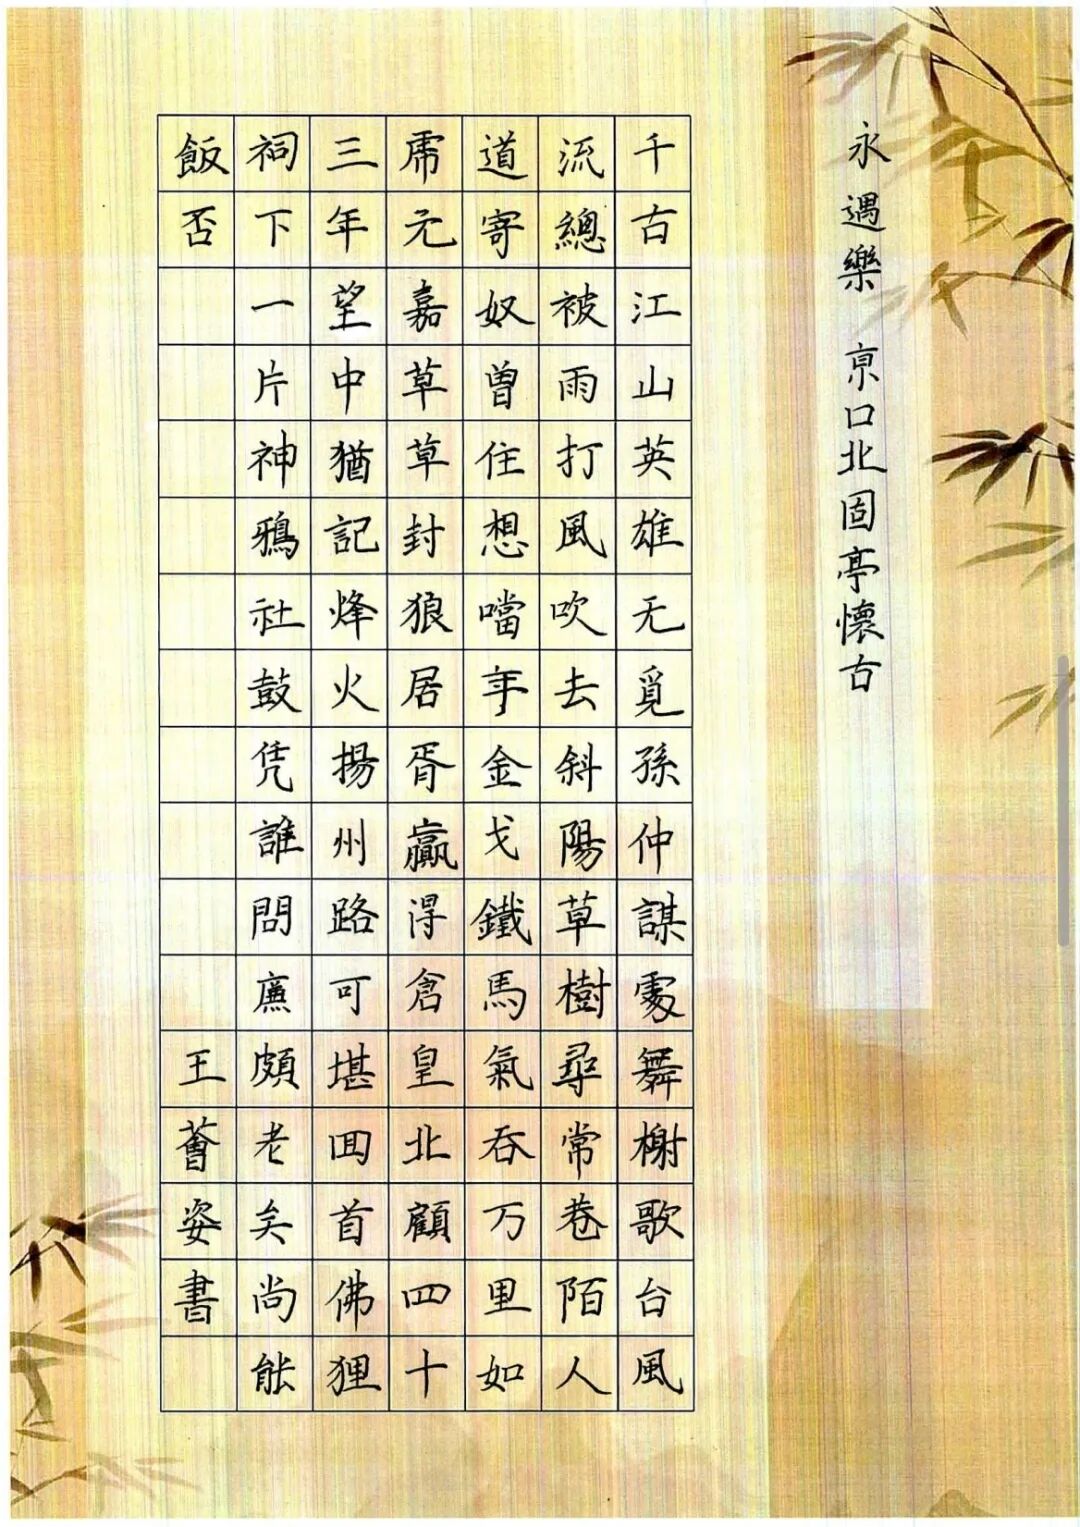 永遇樂 亰口北固亭懷古
千古江山英雄无覓孫仲謀處舞榭歌台風
流總被雨打風吹去斜陽草樹尋常巷陌人
道寄奴曾住想噹年金戈鐵馬氣吞万里如
虎元嘉草草封狼居胥贏得倉皇北顧四十
三年望中猶記烽火揚州路可堪囬首佛狸
祠下一片神鴉社鼓凭誰問廉頗老矣尚能
飯否
王薈姿書